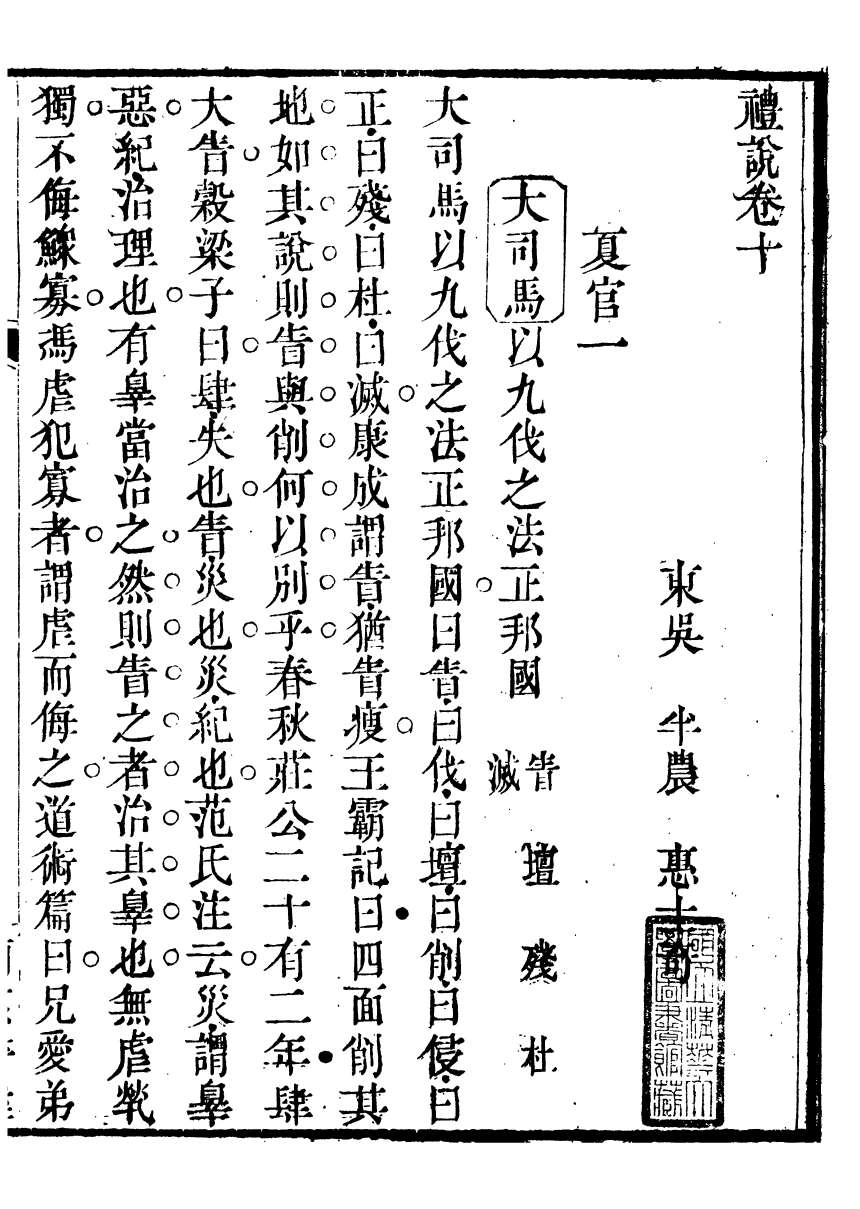 禮說卷十
東吳 半農 惠士奇
夏官一
大司馬以九伐之法正邦國 眚 壇 殘 杜 滅
大司馬以九伐之法正邦國曰眚曰伐曰壇曰削曰侵曰
正曰殘曰杜曰滅康成謂眚猶眚瘦王霸記曰四面削其
地如其說則眚與削何以別乎春秋莊公二十有二年肆
大眚穀梁子曰肆失也眚災也災紀也范氏注云災謂辠
惡紀治理也有辠當治之然則眚之者治其辠也無虐煢
獨不侮鰥寡馮虐犯寡者謂虐而侮之道術篇曰兄愛弟